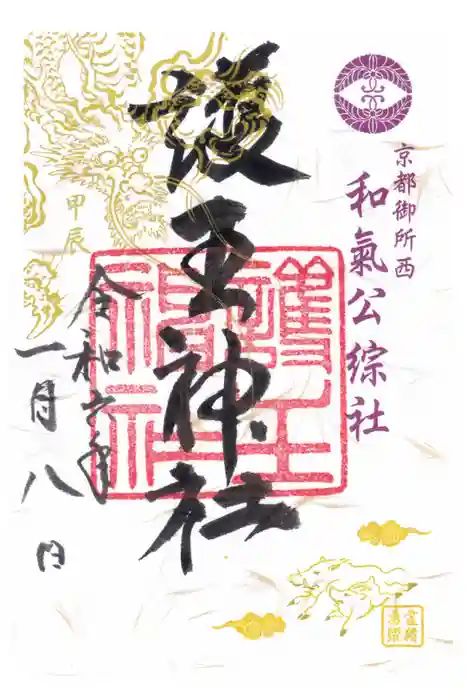 京都御所西
和氣公綜社
護王神社
護王神社
甲辰
令和六年
一月八日